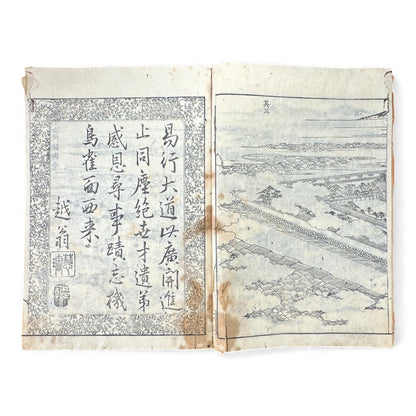 其三
易行大道以廣開進
止同塵絶世才遺弟
感恩尋事蹟忘機
鳥雀面西来
越翁